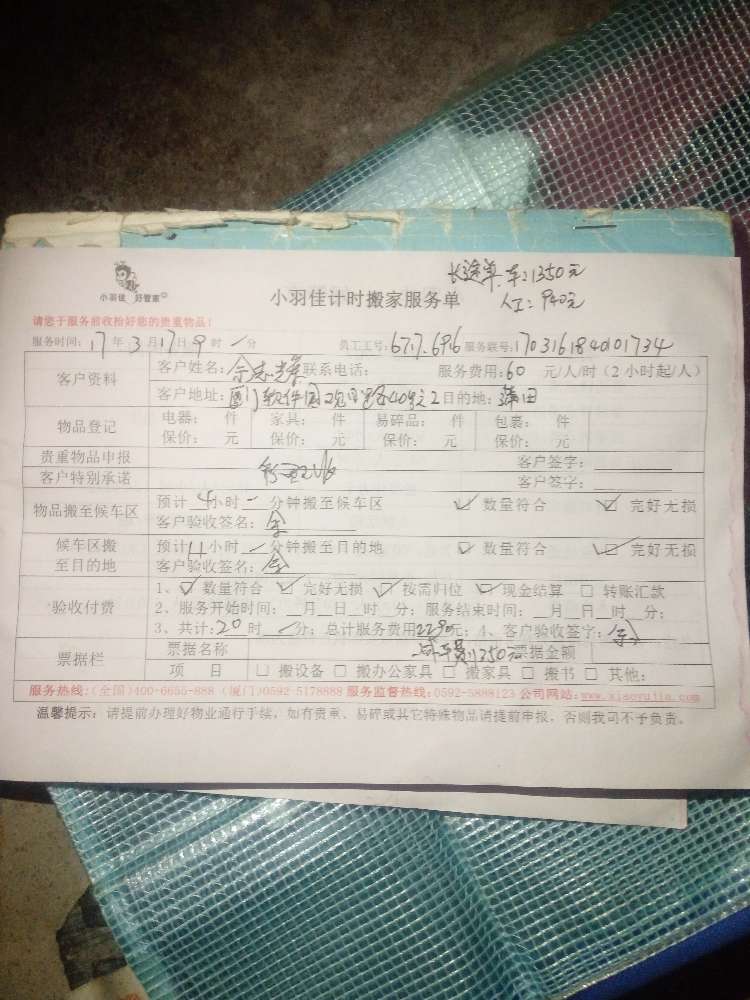 长途单 车：1350元
小羽佳 好管家
小羽佳计时搬家服务单 人工：940元
请您于服务前收捡好您的贵重物品！
服务时间：17年3月17日9时 分 员工工号：677.696 服务联号：1703161840101734
客户资料 客户姓名： 联系电话： 服务费用：60 元/人/时（2小时起/人）
客户地址：厦门软件园 2 目的地：莆田
物品登记 电器： 件 家具： 件 易碎品： 件 包裹： 件
保价： 元 保价： 元 保价： 元 保价： 元
贵重物品申报 客户签字：
客户特别承诺 客户签字：
物品搬至候车区 预计4小时 分钟搬至候车区 数量符合 完好无损
客户验收签名：余
候车区搬至目的地 预计 小时 分钟搬至目的地 数量符合 完好无损
客户验收签名：余
验收付费 1、数量符合 完好无损 按需归位 现金结算 转账汇款
2、服务开始时间： 月 日 时 分；服务结束时间： 月 日 时 分；
3、共计：20时 分；总计服务费用2290元；4、客户验收签字：余
票据栏 票据名称 票据金额
项 目 搬设备 搬办公家具 搬家具 搬书 其他：
服务热线：（全国）400-6655-888（厦门）0592-5178889 服务监督热线：0592-5888123 公司网站：www.xiaoyujia.com
温馨提示：请提前办理好物业通行手续，如有贵重、易碎或其它特殊物品请提前申报，否则我司不予负责。